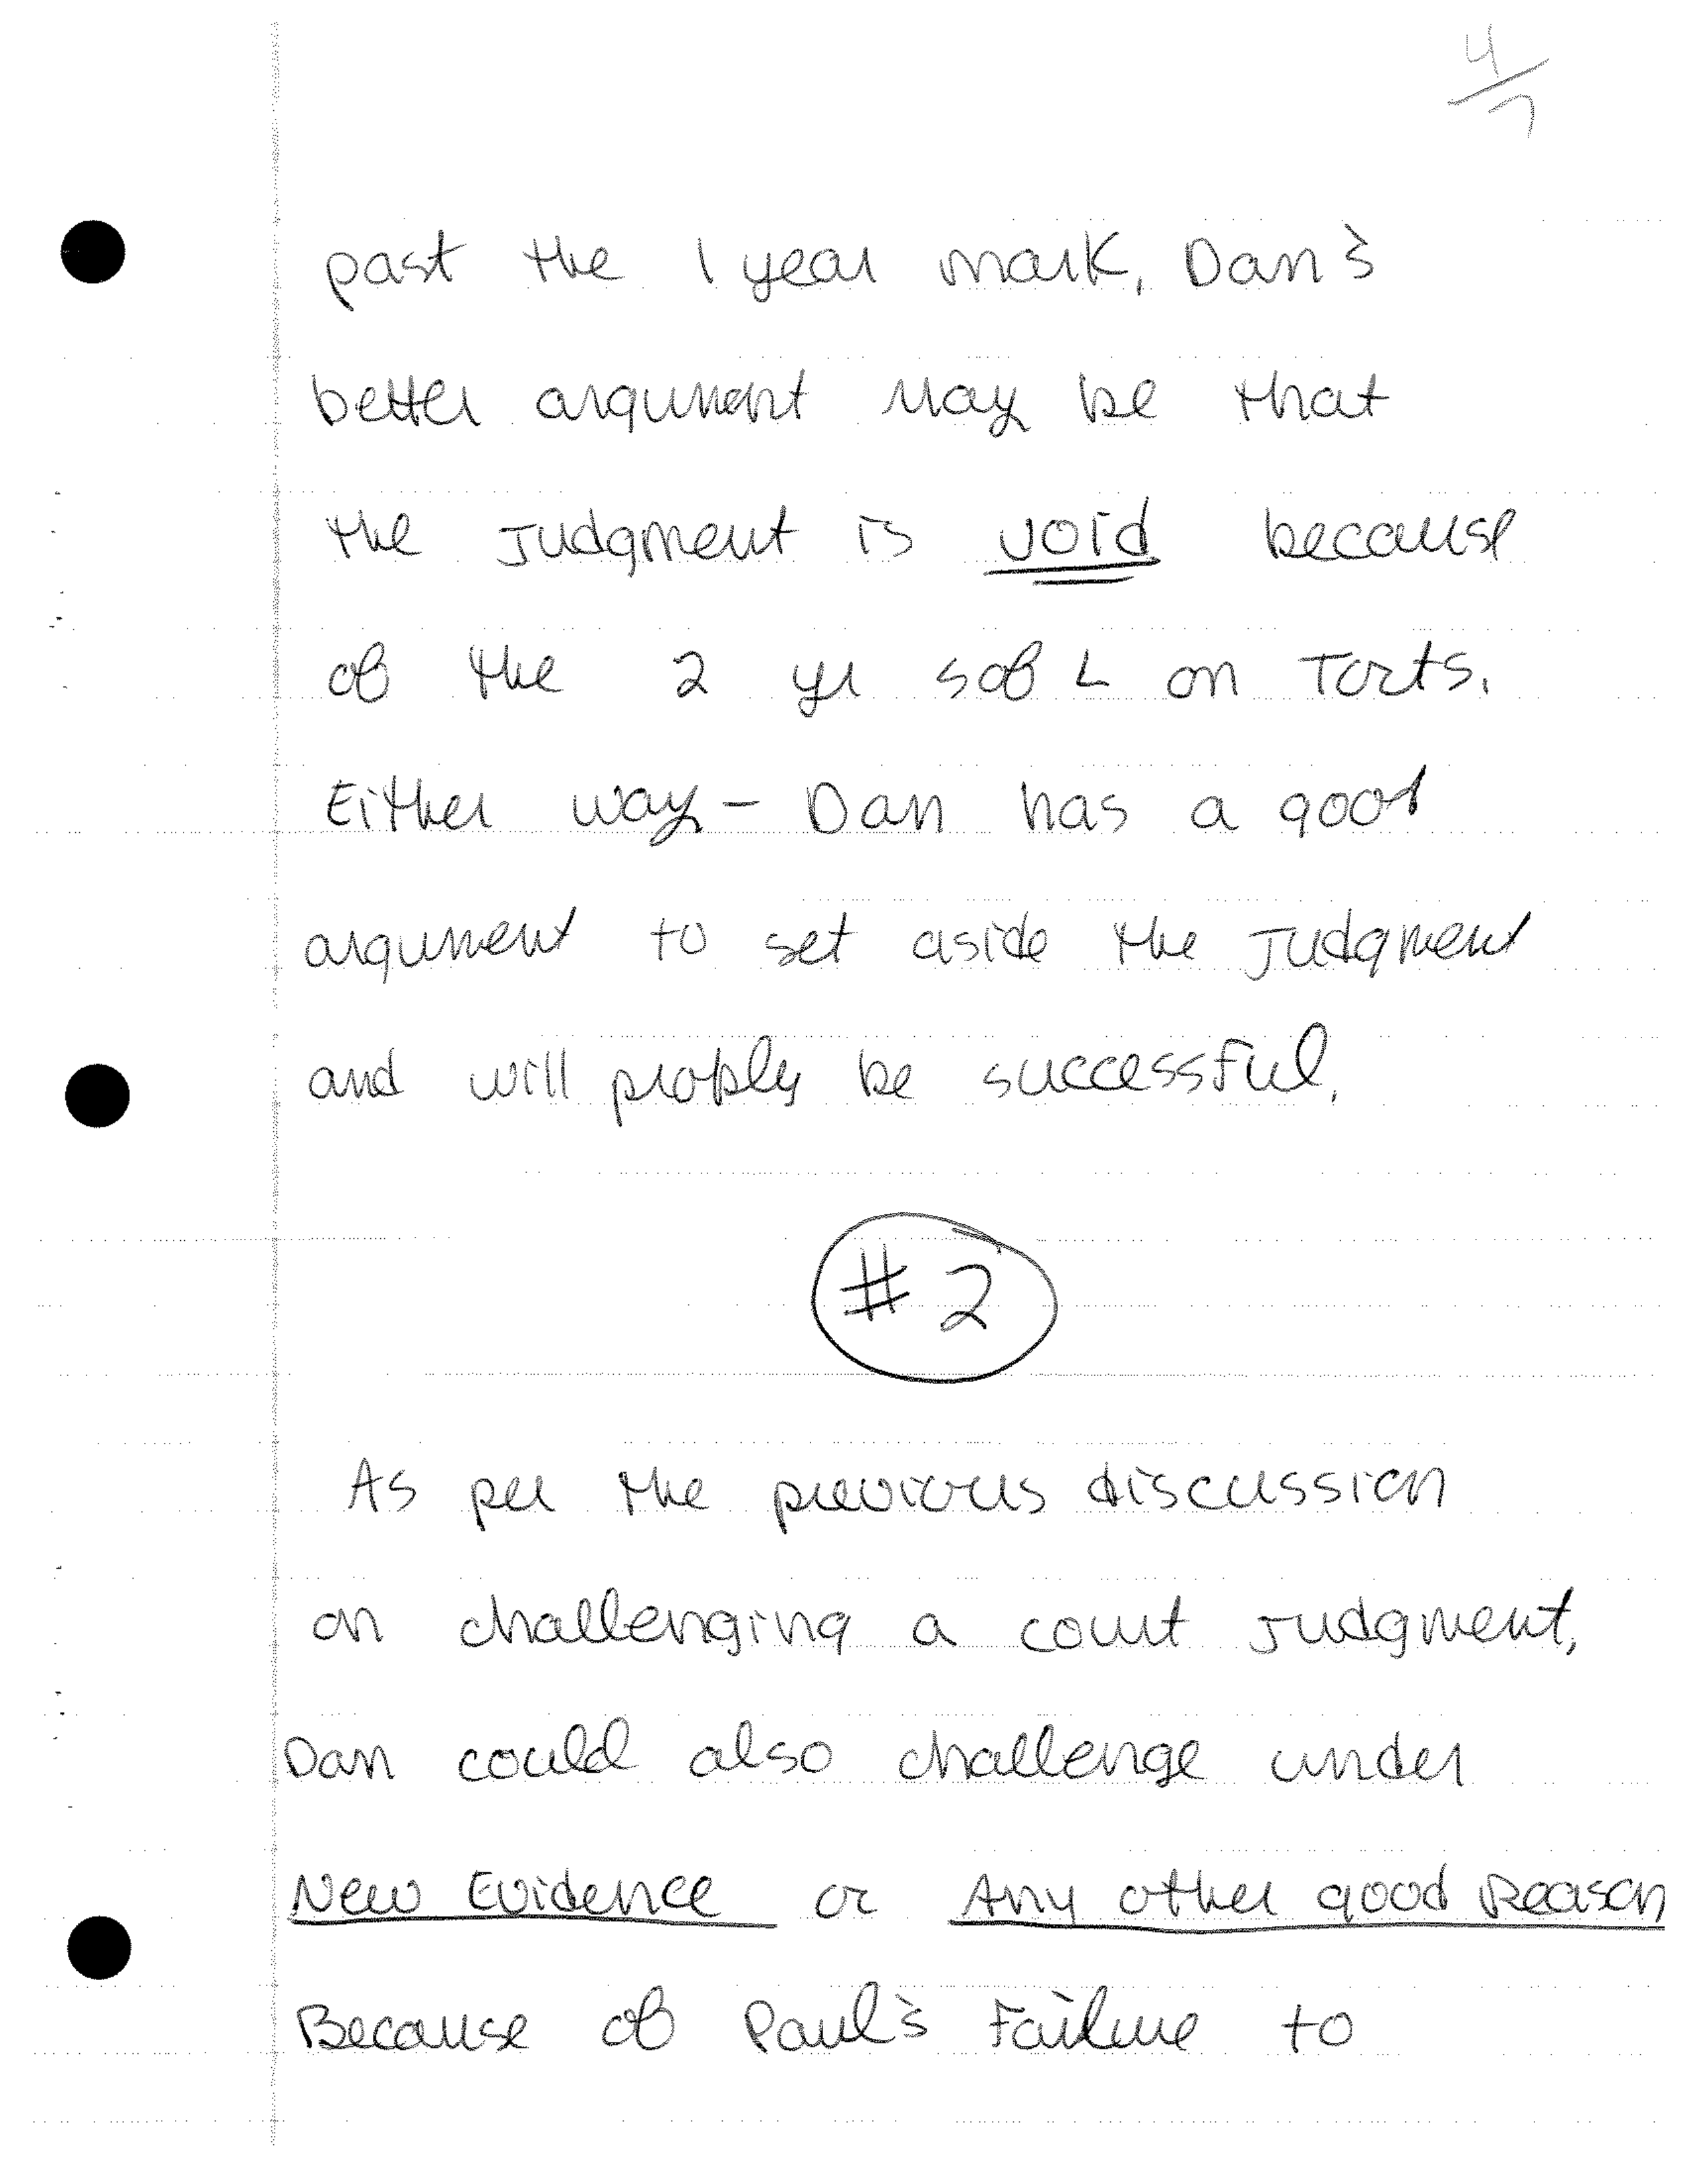 4/7
past the 1 year mark, Dan's
better argument may be that
the Judgment is void because
of the 2 yr S of L on Torts.
Either way - Dan has a good
argument to set aside the Judgment
and will probly be successful.
#2
As per the previous discussion
on challenging a court Judgment,
Dan could also challenge under
New Evidence or Any other good Reason
Because of Paul's Failure to